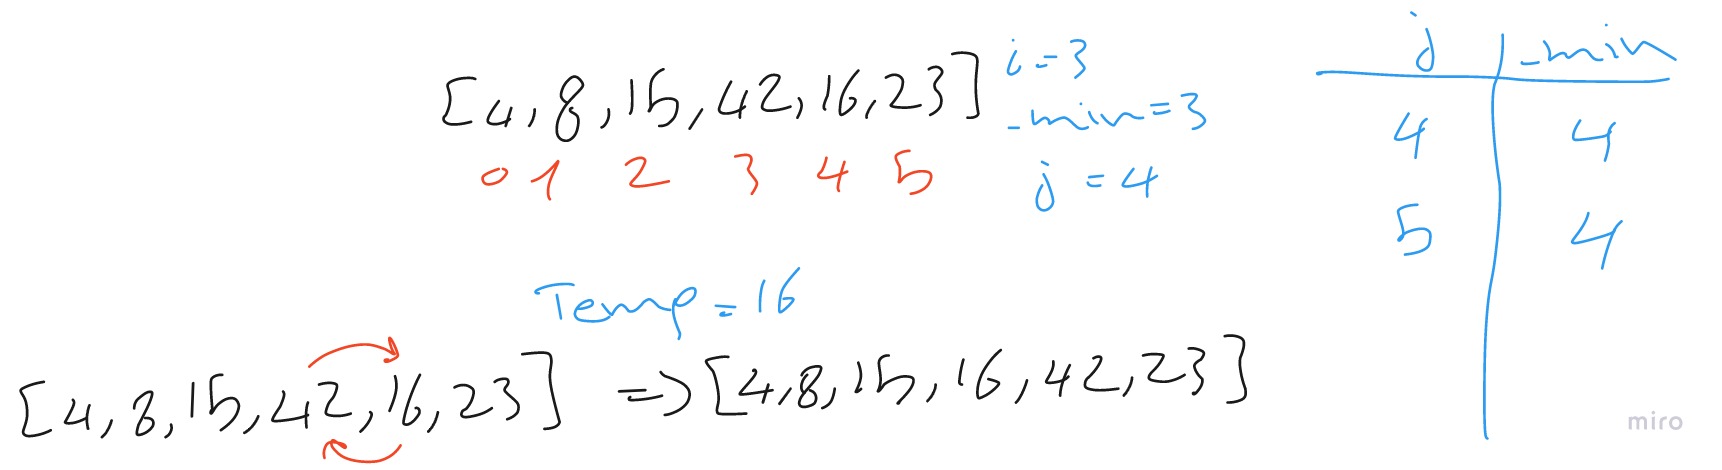 [4, 8, 15, 42, 16, 23]
0 1 2 3 4 5
i = 3
_min = 3
j = 4
j _min
4 4
5 4
Temp = 16
[4, 8, 15, 42, 16, 23] => [4, 8, 15, 16, 42, 23]
miro